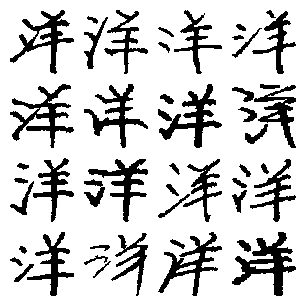 洋洋洋洋
洋洋洋洋
洋洋洋洋
洋洋洋洋